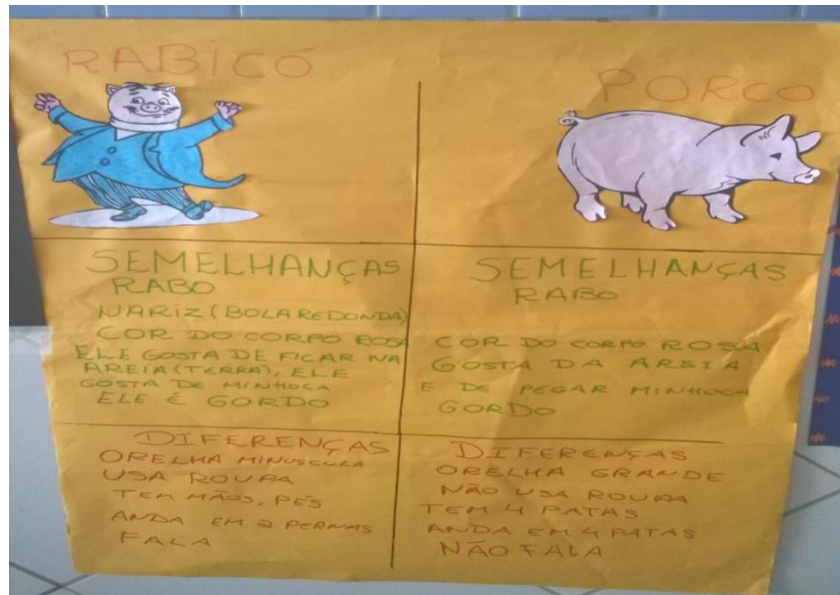 RABICÓ
SEMELHANÇAS
RABO
NARIZ (BOLA REDONDA)
COR DO CORPO ROSA
ELE GOSTA DE FICAR NA
AREIA (TERRA), ELE
GOSTA DE MINHOCA
ELE É GORDO
DIFERENÇAS
ORELHA MINUSCULA
USA ROUPA
TEM MÃOS, PÉS
ANDA EM 2 PERNAS
FALA
PORCO
SEMELHANÇAS
RABO
COR DO CORPO ROSA
GOSTA DA AREIA
E DE PEGAR MINHOCA
GORDO
DIFERENÇAS
ORELHA GRANDE
NÃO USA ROUPA
TEM 4 PATAS
ANDA EM 4 PATAS
NÃO FALA